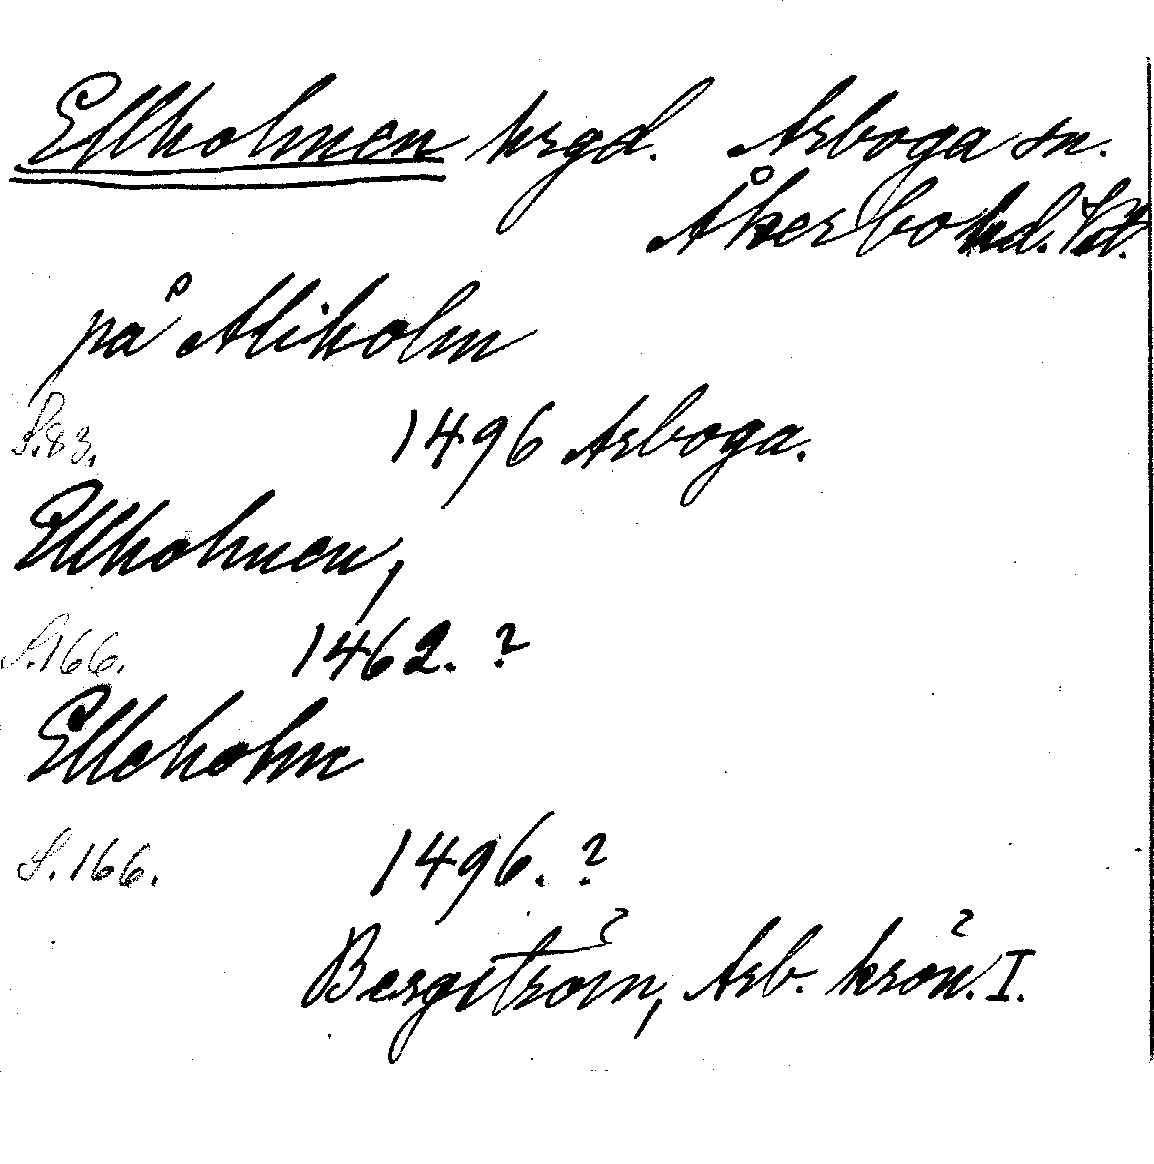 Ellholmen hrgd. Arboga sn.
Åkerbo hd. Vstm.
på Aliholm
S. 83. 1496 Arboga.
Ellholmen,
S. 166. 1462. ?
Elleholm
S. 166. 1496. ?
Bergström, Arb. krön. I.